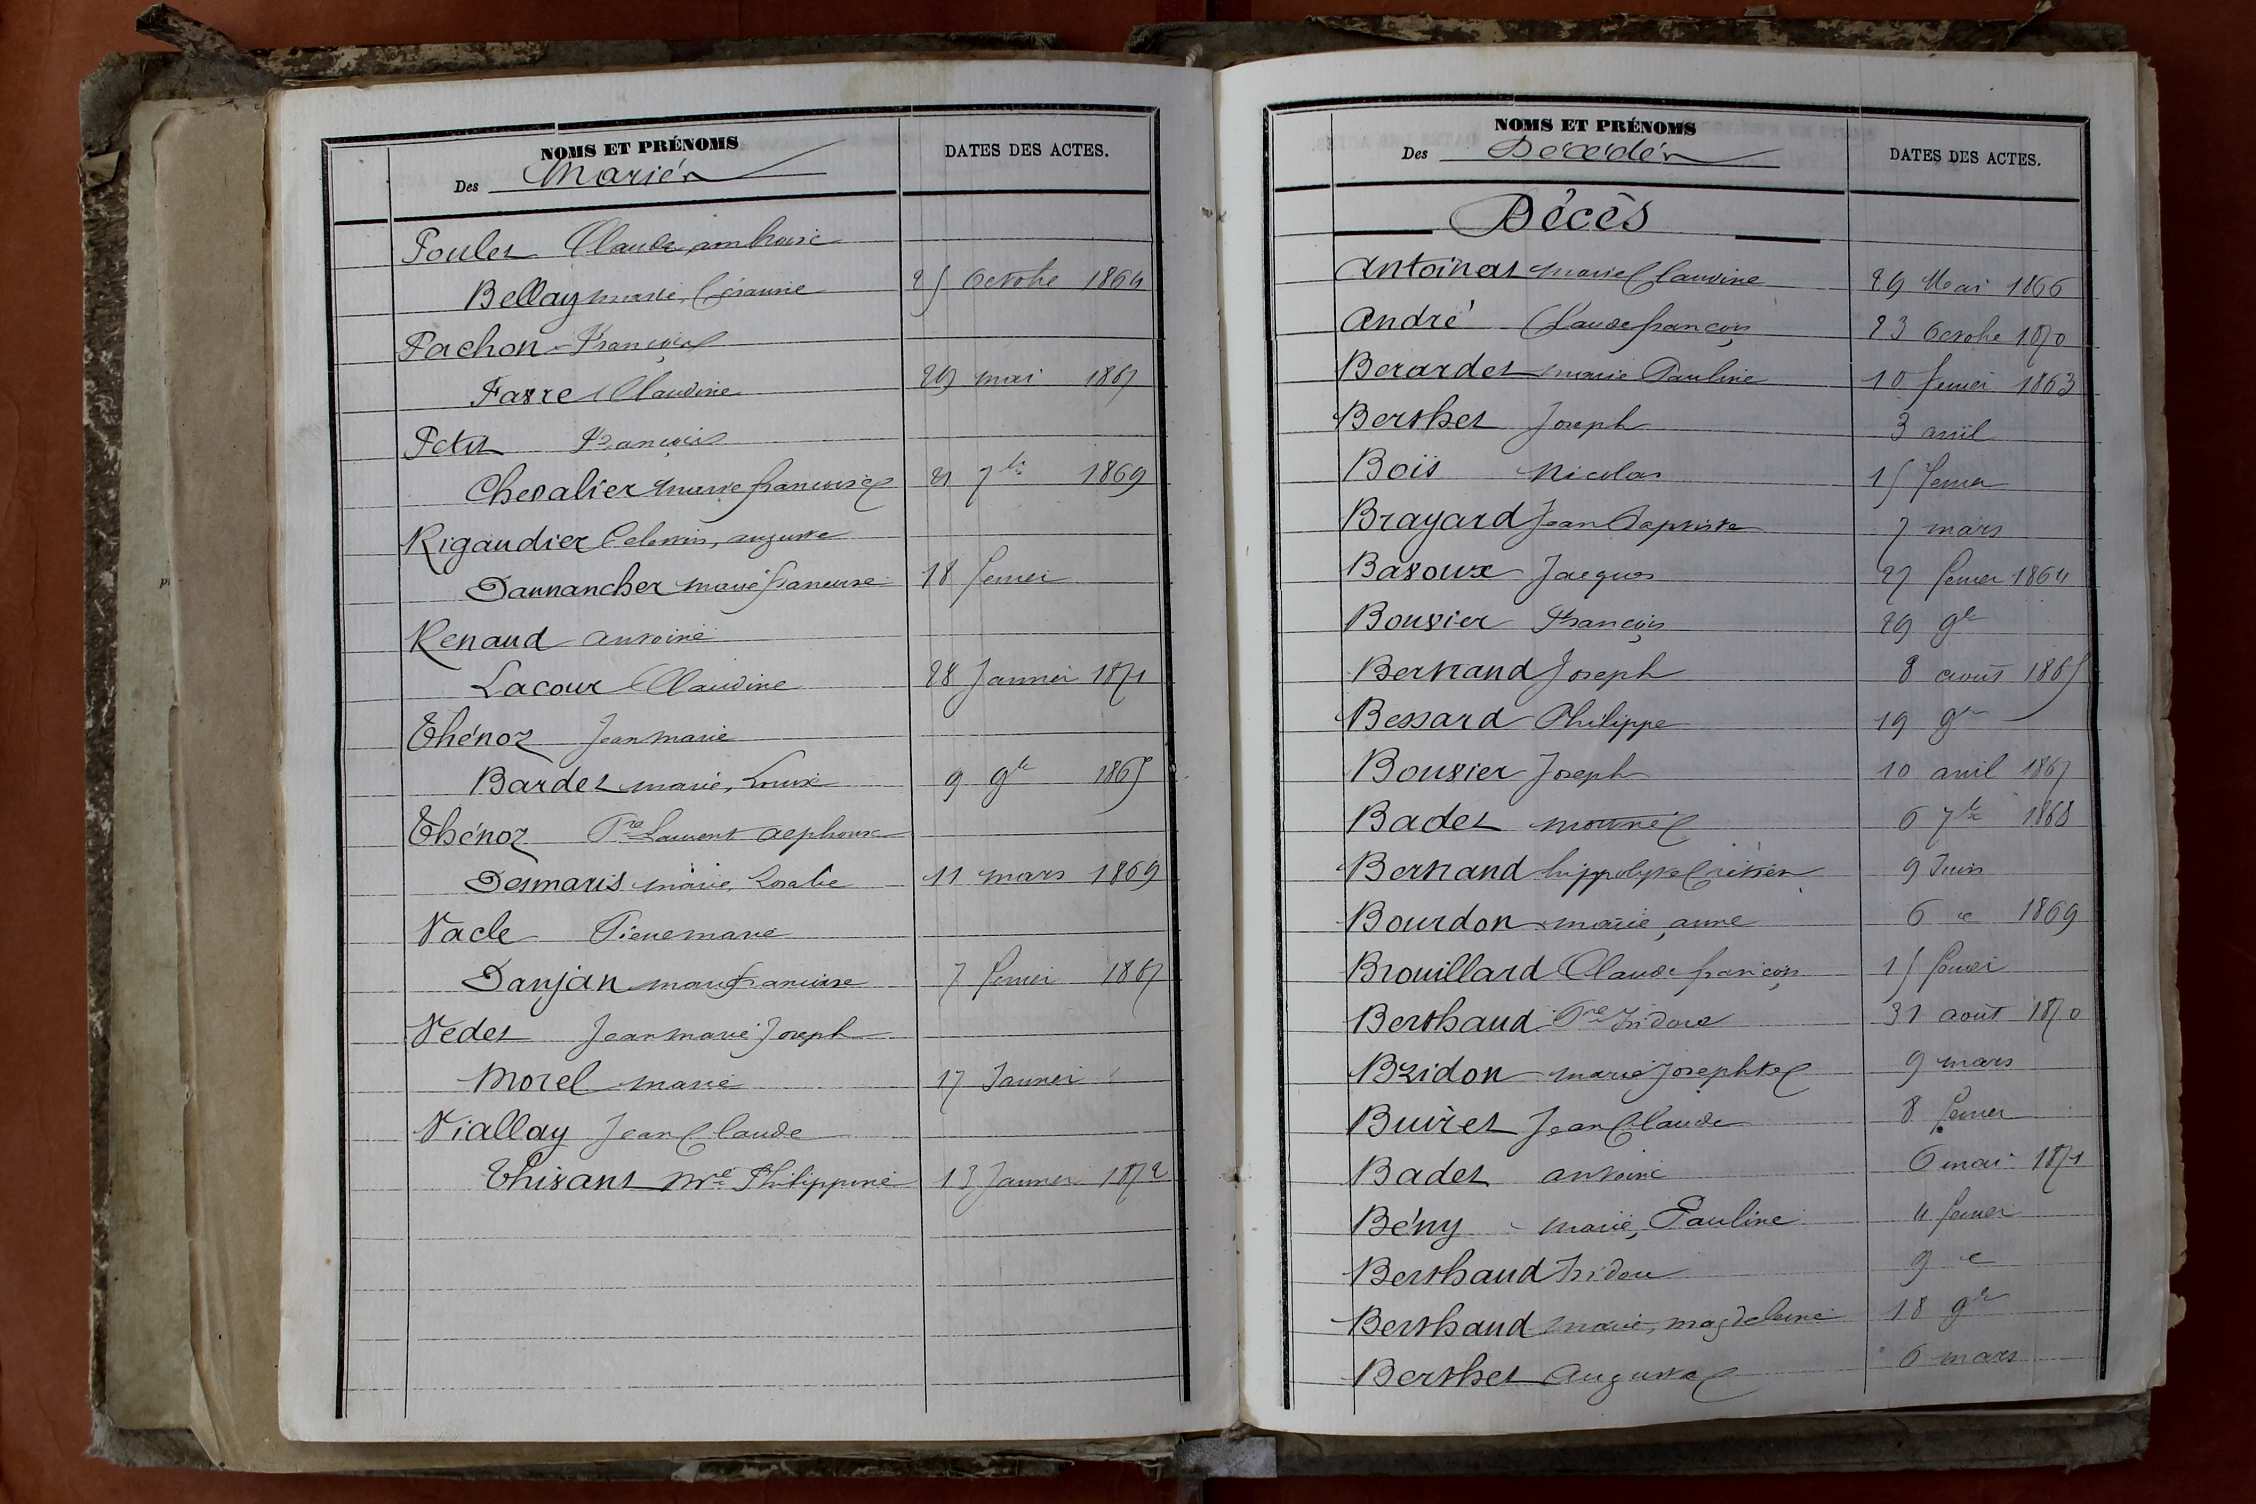 NOMS ET PRÉNOMS
Des Mariés
DATES DES ACTES.
Poulet Claude, ambroise
Bellay marie, Césarine 25 Octobre 1864
Pachon François
Favre Claudine 29 mai 1867
Petit François
Chevalier marie françoise 21 7bre 1869
Rigaudier Célestin, auguste
Dannancher marie françoise 18 fevrier
Renaud antoine
Lacour Claudine 28 Janvier 1871
Thénoz Jean marie
Bardet marie, Louise 9 9bre 1865
Thénoz Pre Laurent alphonse
Desmaris marie, Rosalie 11 mars 1869
Vacle Pierre marie
Danjan marie françoise 7 fevrier 1867
Vedet Jean marie Joseph
Morel marie 17 Janvier
Viallay Jean Claude
Thivant Mie Philippine 13 Janvier 1872
NOMS ET PRÉNOMS
Des Décédés
DATES DES ACTES.
Décès
Antoinet marie Claudine 29 Mai 1866
André Claude françois 23 Octobre 1870
Berardet marie Pauline 10 fevrier 1863
Berthet Joseph 3 avril
Bois Nicolas 15 fevrier
Brayard Jean Baptiste 7 mars
Bavoux Jacques 27 fevrier 1864
Bouvier François 29 9bre
Bertrand Joseph 8 août 1865
Bessard Philippe 19 9bre
Bouvier Joseph 10 avril 1867
Badet 6 7bre 1868
Bertrand hippolyte 9 Juin
Bourdon marie, anne 6 1869
Brouillard Claude françois 15 fevrier
Berthaud Pre Isidore 31 août 1870
Bridon marie Josephte 9 mars
Buiret Jean Claude 8 fevrier
Badet antoine 6 mai 1871
Bény marie, Pauline 4 fevrier
Berthaud Isidore 9
Berthaud marie, magdeleine 18 9bre
Berthet Auguste 6 mars